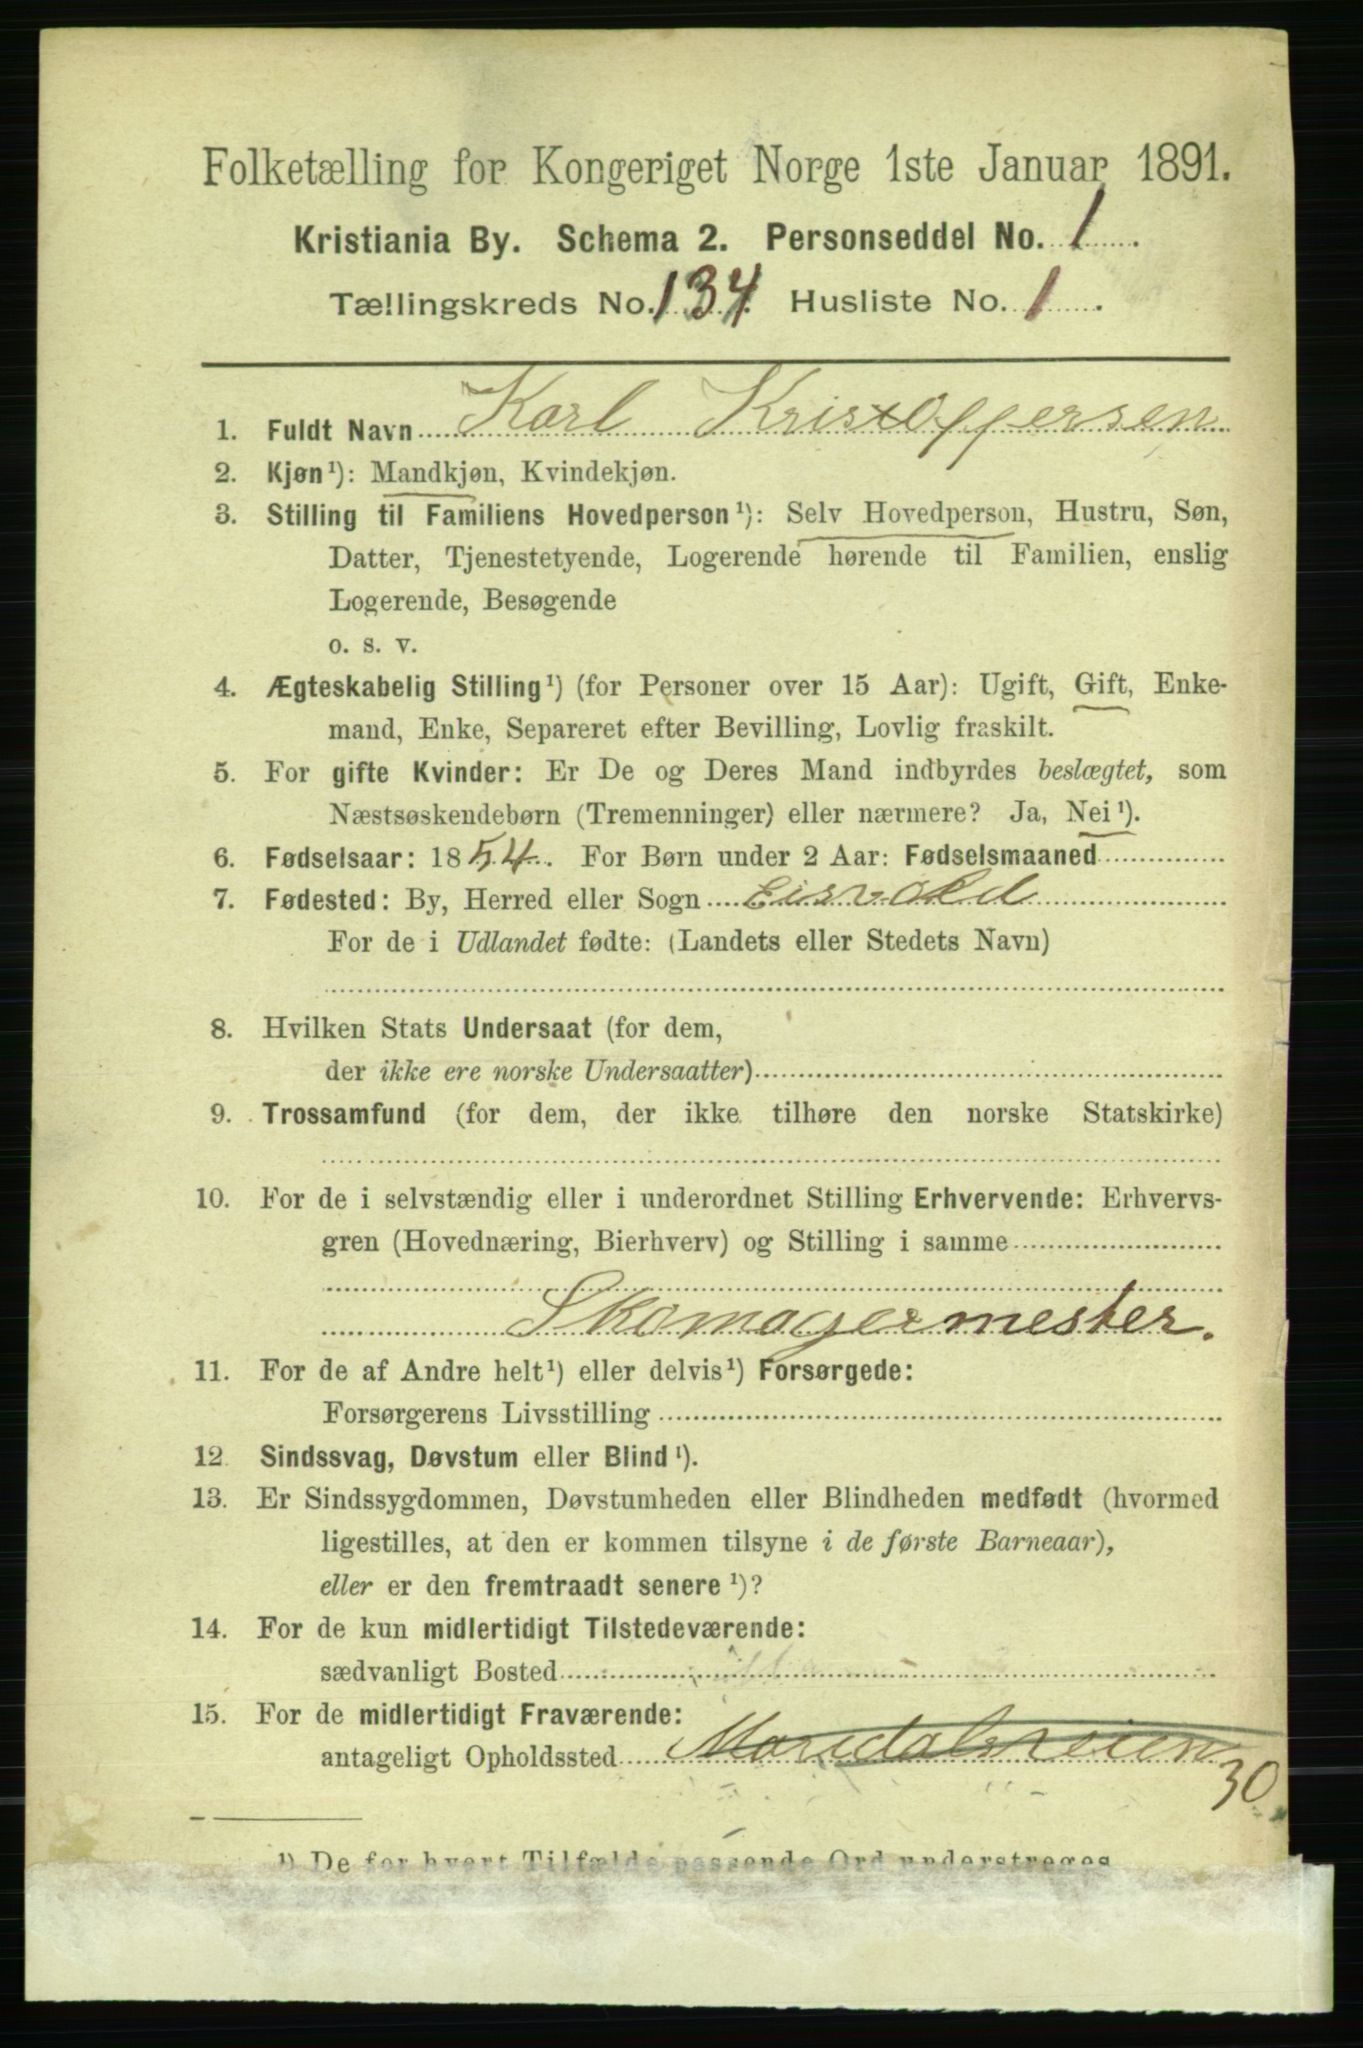 Folketælling for Kongeriget Norge 1ste Januar 1891.
Kristiania By. Schema 2. Personseddel No. 1.
Tællingskreds No. 134. Husliste No. 1.
1. Fuldt Navn Karl Kristoffersen
2. Kjøn¹): Mandkjøn, Kvindekjøn.
3. Stilling til Familiens Hovedperson¹): Selv Hovedperson, Hustru, Søn,
Datter, Tjenestetyende, Logerende hørende til Familien, enslig
Logerende, Besøgende
o. s. v.
4. Ægteskabelig Stilling¹) (for Personer over 15 Aar): Ugift, Gift, Enke-
mand, Enke, Separeret efter Bevilling, Lovlig fraskilt.
5. For gifte Kvinder: Er De og Deres Mand indbyrdes beslægtet, som
Næstsøskendebørn (Tremenninger) eller nærmere? Ja, Nei¹).
6. Fødselsaar: 1854. For Børn under 2 Aar: Fødselsmaaned
7. Fødested: By, Herred eller Sogn Eisvold
For de i Udlandet fødte: (Landets eller Stedets Navn)
8. Hvilken Stats Undersaat (for dem,
der ikke ere norske Undersaatter)
9. Trossamfund (for dem, der ikke tilhøre den norske Statskirke)
10. For de i selvstændig eller i underordnet Stilling Erhvervende: Erhvervs-
gren (Hovednæring, Bierhverv) og Stilling i samme
Skomagermester.
11. For de af Andre helt¹) eller delvis¹) Forsørgede:
Forsørgerens Livsstilling
12. Sindssvag, Døvstum eller Blind¹).
13. Er Sindssygdommen, Døvstumheden eller Blindheden medfødt (hvormed
ligestilles, at den er kommen tilsyne i de første Barneaar),
eller er den fremtraadt senere¹)?
14. For de kun midlertidigt Tilstedeværende:
sædvanligt Bosted
15. For de midlertidigt Fraværende:
antageligt Opholdssted Maridalsveien
30
¹) De for hvert Tilfælde passende Ord understreges